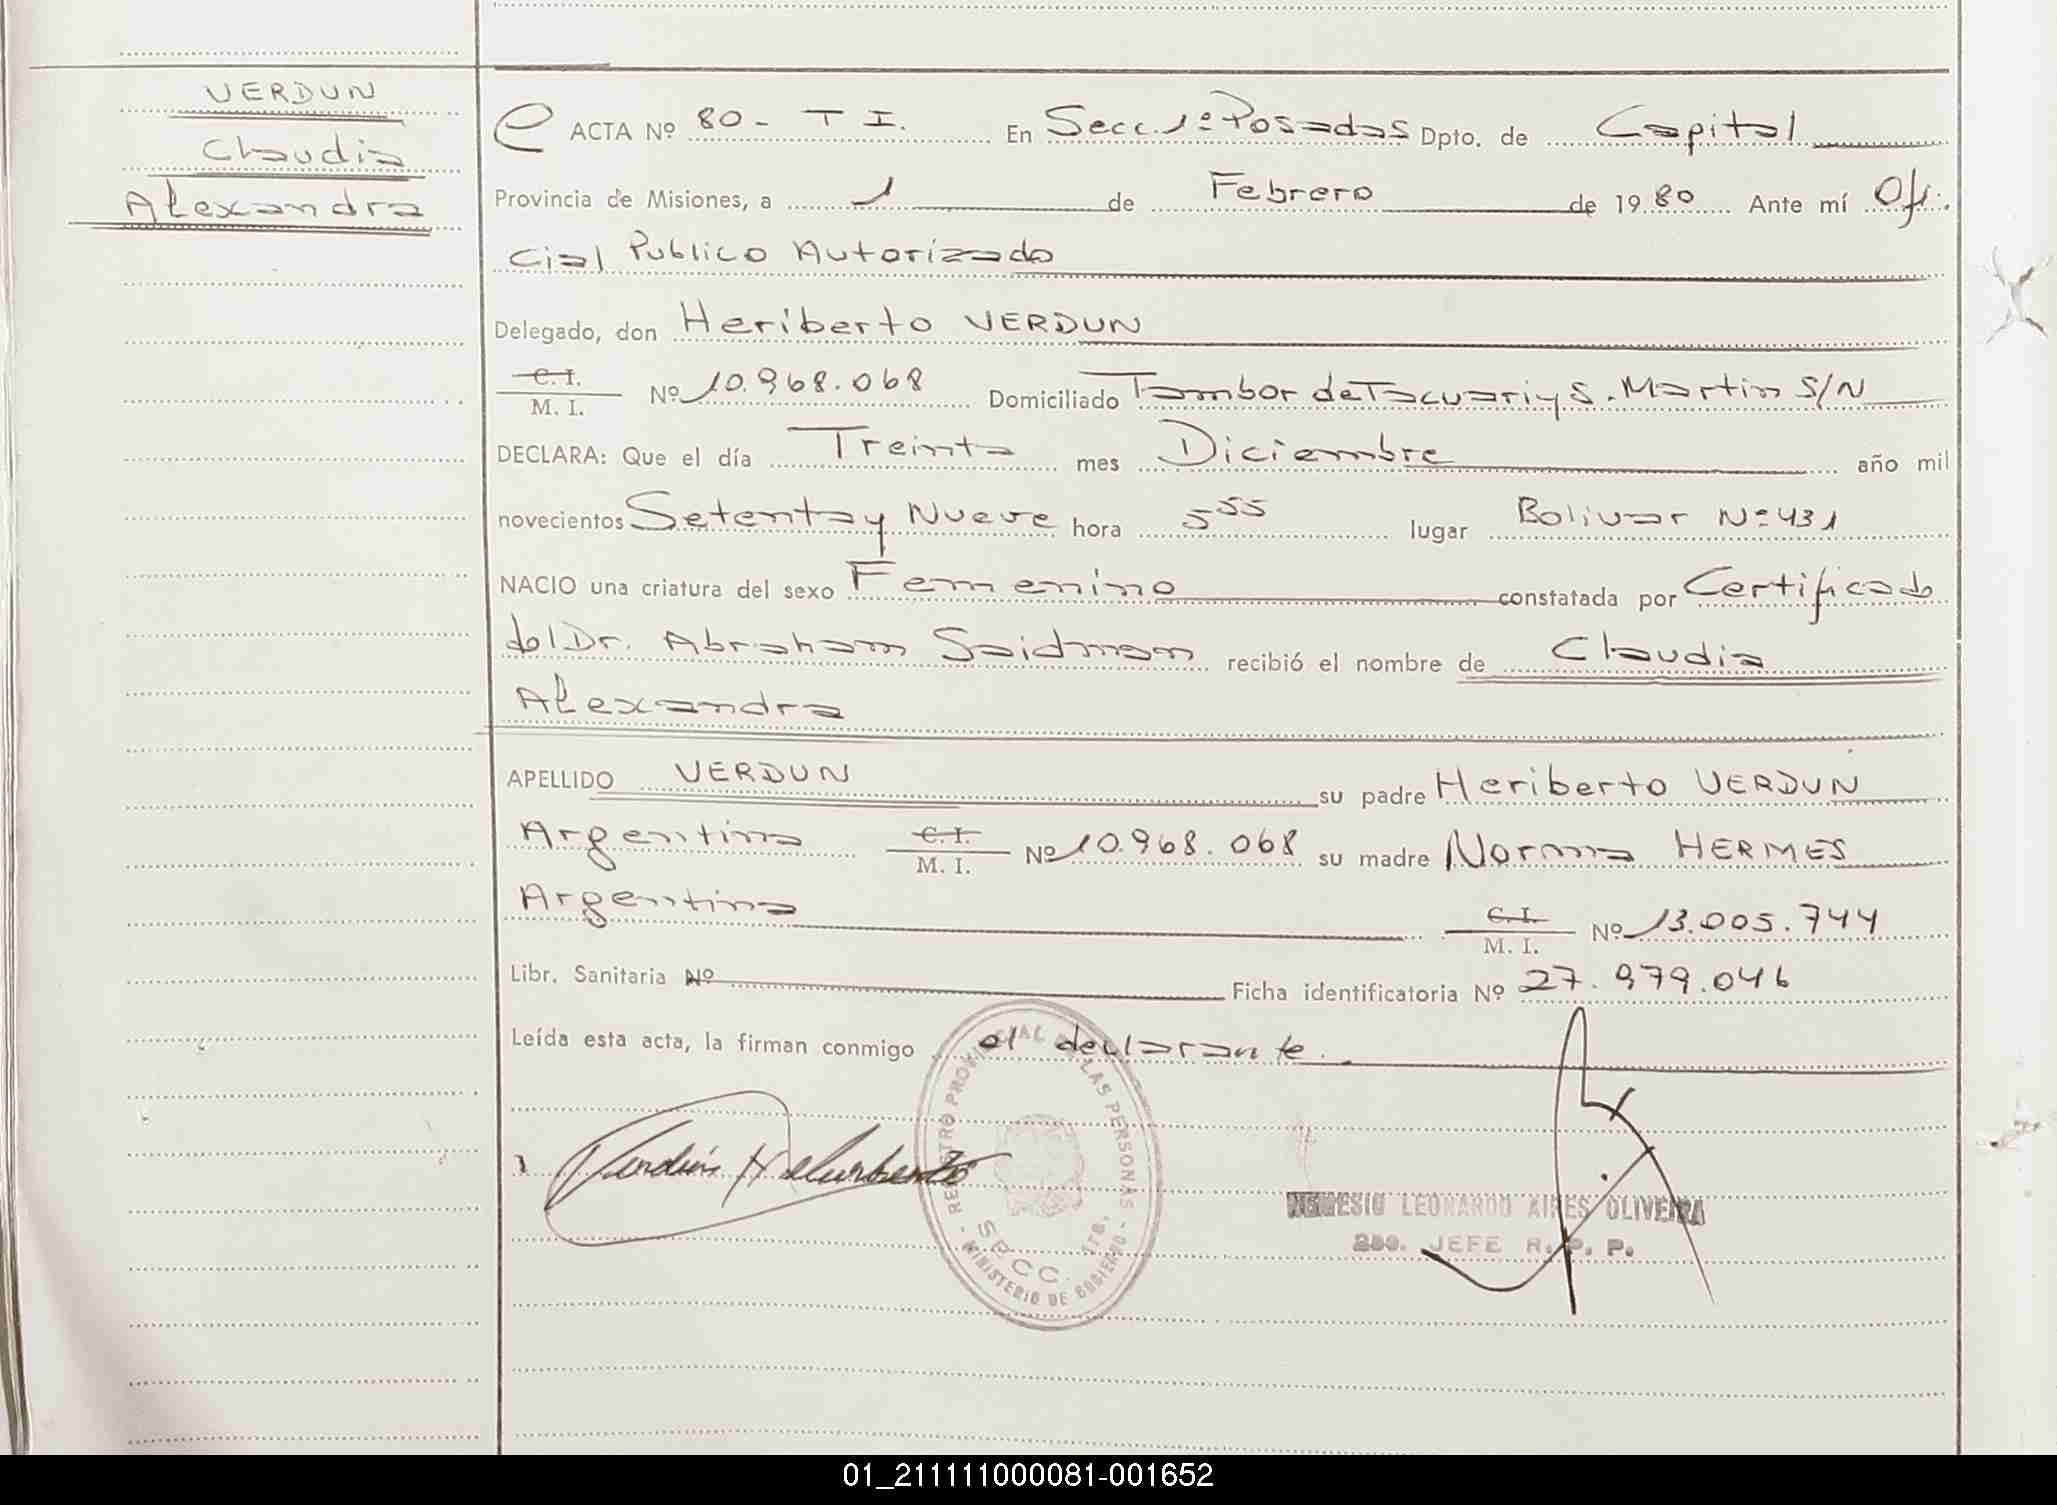 VERDUN
Claudia
Alexandra
ACTA Nº 80 - T I. En Secc. 1º Posadas Dpto. de Capital
Provincia de Misiones, a 1 de Febrero de 1980 Ante mí Ofi.
cial Publico Autorizado
Delegado, don Heriberto VERDUN
C. I.
M. I. Nº 10.968.068 Domiciliado Tambor de Tacuari y S. Martin S/N
DECLARA: Que el día Treinta mes Diciembre año mil
novecientos Setenta y Nueve hora 5 55 lugar Bolivar Nº 431
NACIO una criatura del sexo Femenino constatada por Certificado
del Dr. Abraham Saidman recibió el nombre de Claudia
Alexandra
APELLIDO VERDUN su padre Heriberto VERDUN
Argentino C. I. M. I. Nº 10.968.068 su madre Norma HERMES
Argentina C. I. M. I. Nº 13.005.744
Libr. Sanitaria Nº Ficha identificatoria Nº 27.979.046
Leída esta acta, la firman conmigo el declarante.
REGISTRO PROVINCIAL DE LAS PERSONAS
SECC. 1TB.
MINISTERIO DE GOBIERNO
NEMESIO LEONARDO AIRES OLIVEIRA
2do. JEFE R. P. P.
01_211111000081-001652